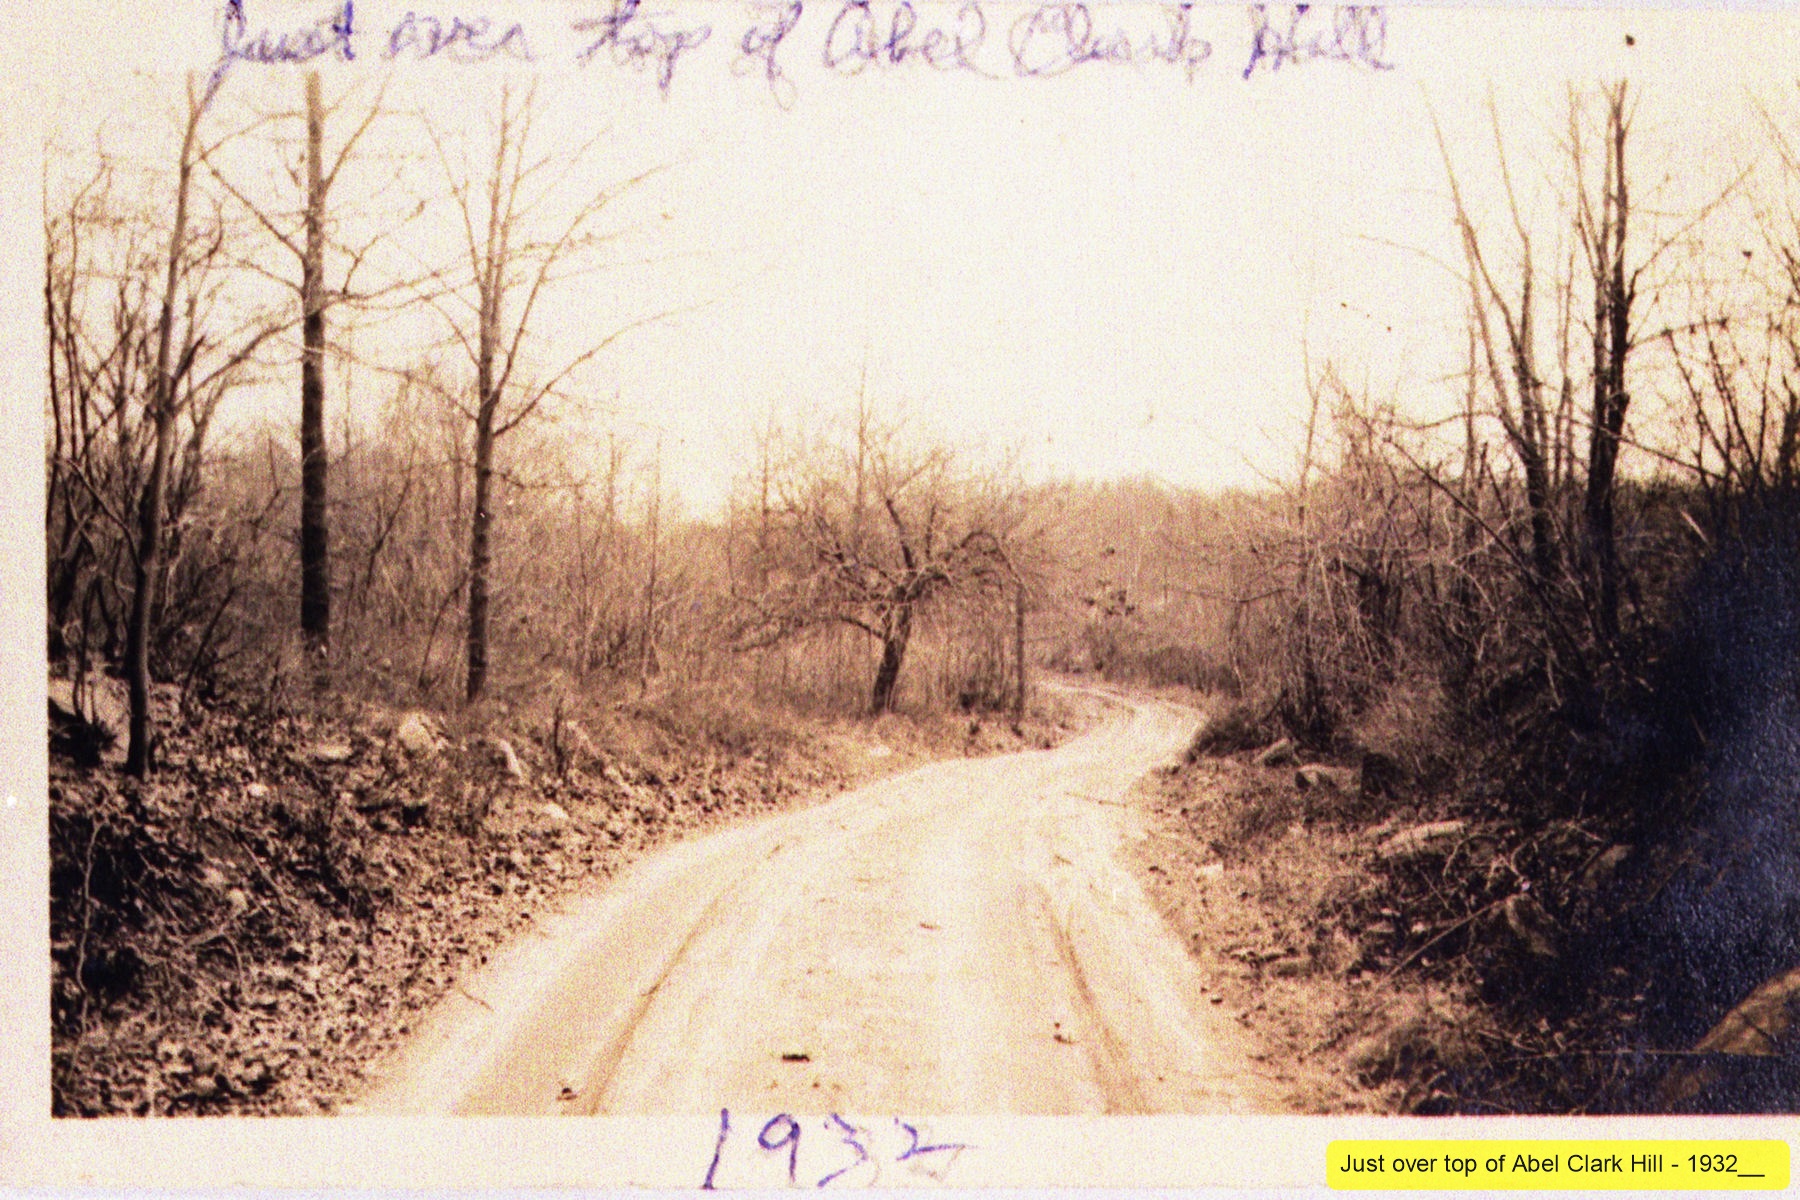 Just over top of Abel Clark Hill
1932
Just over top of Abel Clark Hill - 1932__